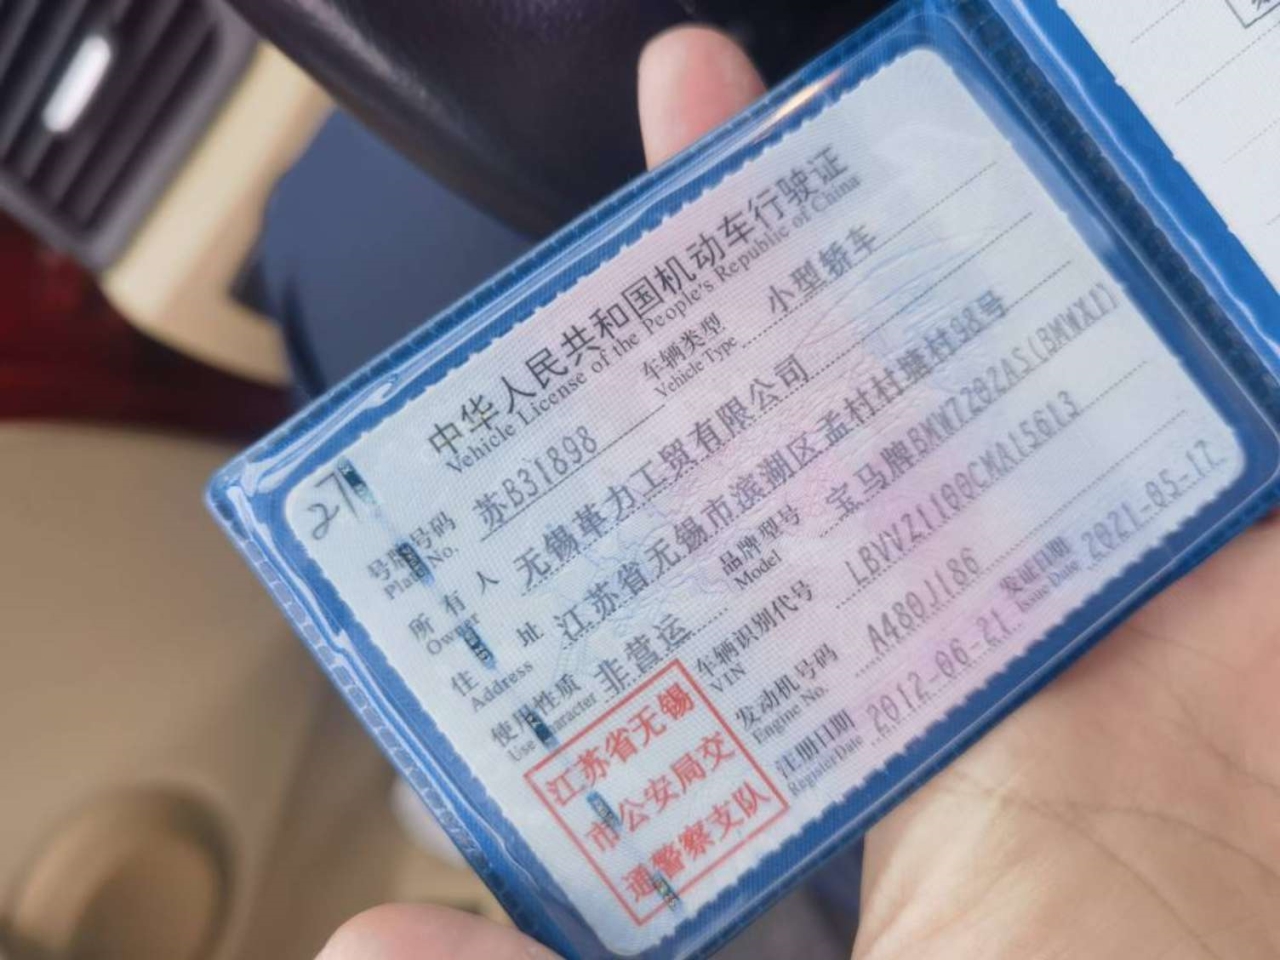 27
中华人民共和国机动车行驶证
Vehicle License of the People's Republic of China
号牌号码 苏B31898 车辆类型 小型轿车
Plate No. Vehicle Type
所有人 无锡革力工贸有限公司
Owner
住址 江苏省无锡市滨湖区孟村村塘村98号
Address
使用性质 非营运 品牌型号 宝马牌BMW7202AS(BMWX1)
Use Character Model
车辆识别代号 LBVVZ1100CMA15613
VIN
发动机号码 A480J186
Engine No.
注册日期 2012-06-21 发证日期 2021-05-17
Register Date Issue Date
江苏省无锡
市公安局交
通警察支队